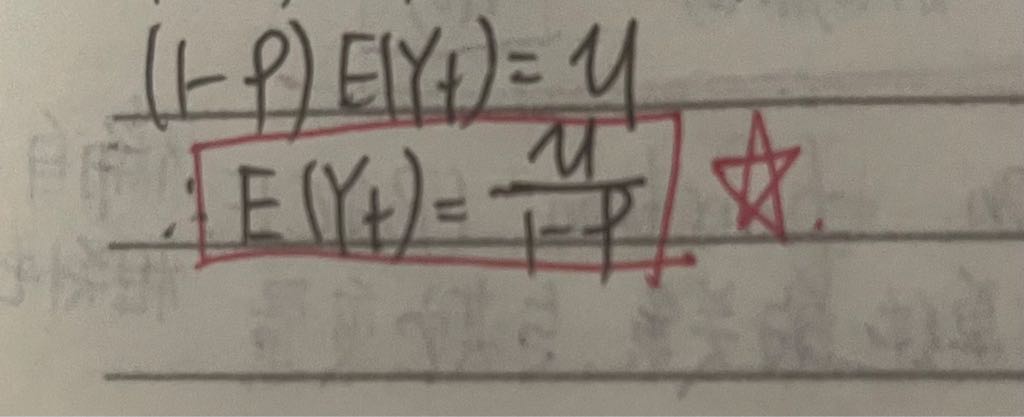 (1-ρ) E(Yt) = μ
∴ E(Yt) = μ/(1-ρ) ☆.